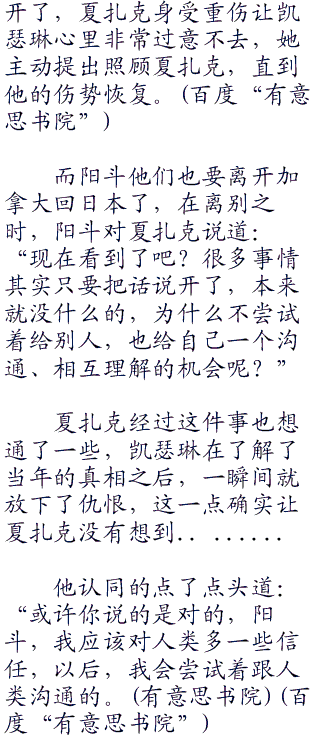 开了，夏扎克身受重伤让凯
瑟琳心里非常过意不去，她
主动提出照顾夏扎克，直到
他的伤势恢复。(百度“有意
思书院”)
而阳斗他们也要离开加
拿大回日本了，在离别之
时，阳斗对夏扎克说道：
“现在看到了吧？很多事情
其实只要把话说开了，本来
就没什么的，为什么不尝试
着给别人，也给自己一个沟
通、相互理解的机会呢？”
夏扎克经过这件事也想
通了一些，凯瑟琳在了解了
当年的真相之后，一瞬间就
放下了仇恨，这一点确实让
夏扎克没有想到．．......
他认同的点了点头道：
“或许你说的是对的，阳
斗，我应该对人类多一些信
任，以后，我会尝试着跟人
类沟通的。(有意思书院)(百
度“有意思书院”)